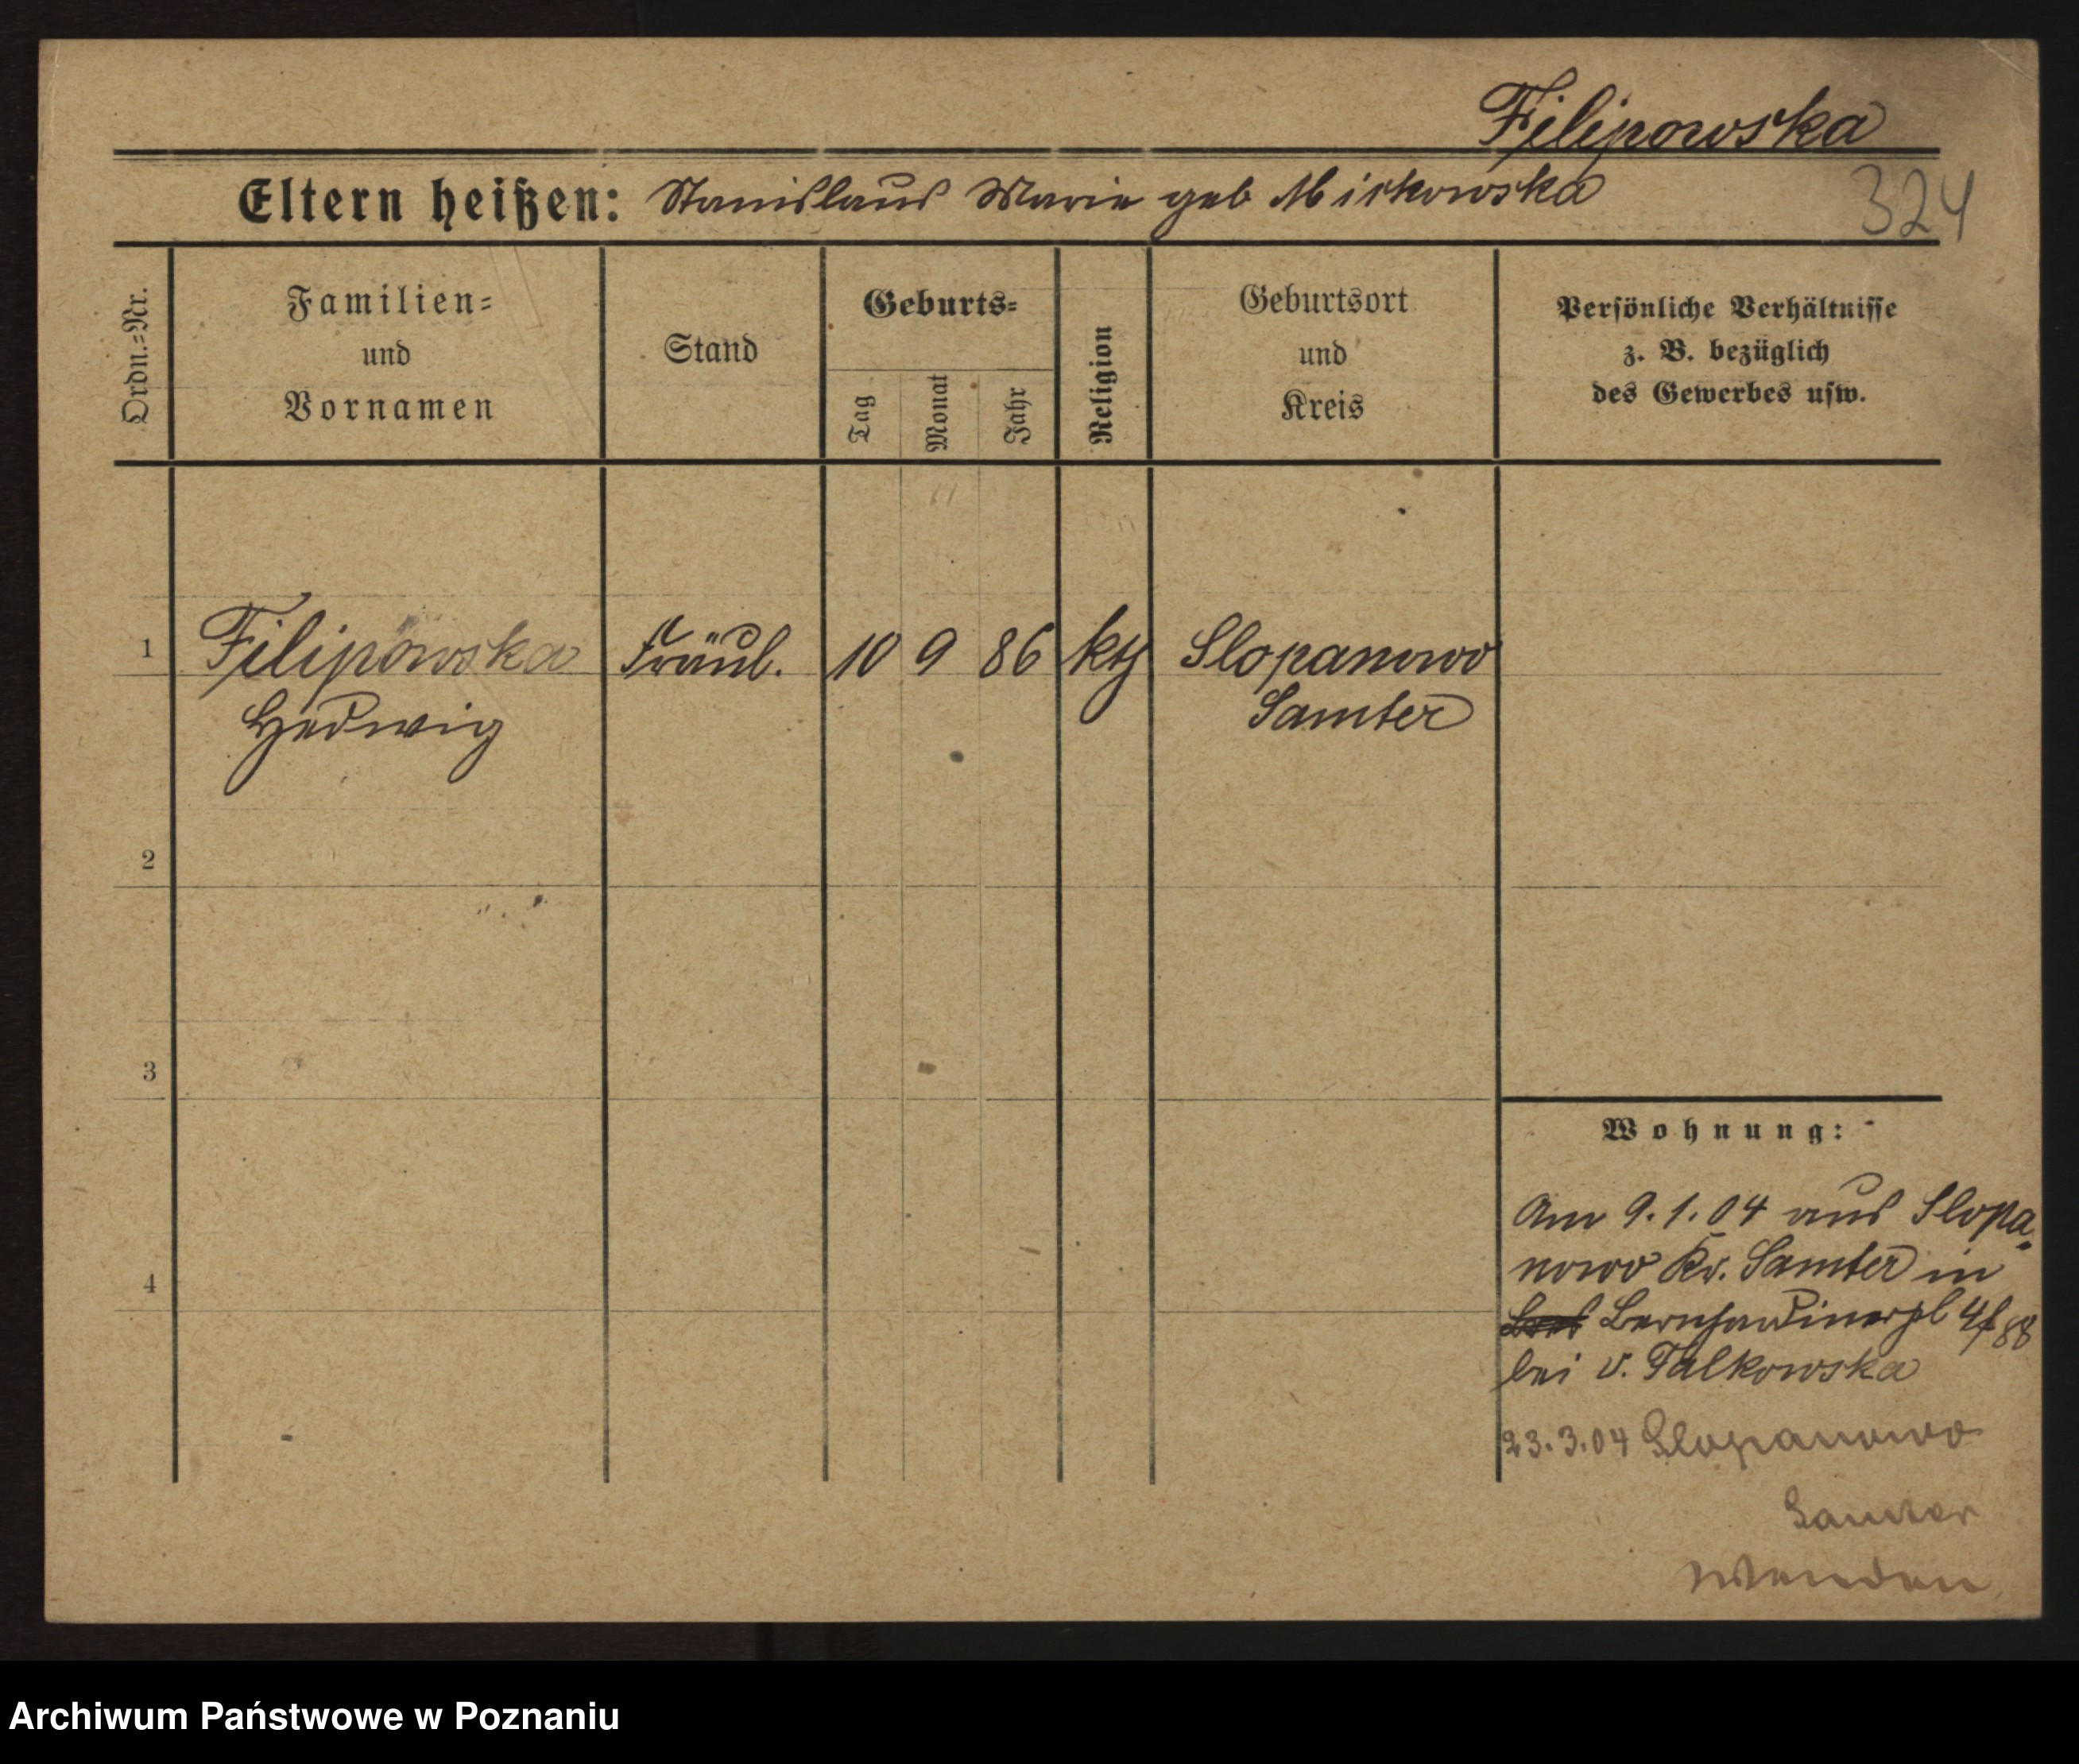 Filipowska
Eltern heißen: Stanislaus Marie geb Mirkowska
324
Ordn.=Nr.
Familien=
und
Vornamen
Stand
Geburts=
Tag
Monat
Jahr
Religion
Geburtsort
und
Kreis
Persönliche Verhältnisse
z. B. bezüglich
des Gewerbes usw.
1 Filipowska Fräul. 10 9 86 kth Slopanowo
Hedwig Samter
2
3
Wohnung:
Am 9.1.04 aus Slopa-
nowo Kr. Samter in
4
Bernhardinerpl 4f 88
bei v. Falkowska
23.3.04 Slopanowo
Samter
Wenden
Archiwum Państwowe w Poznaniu